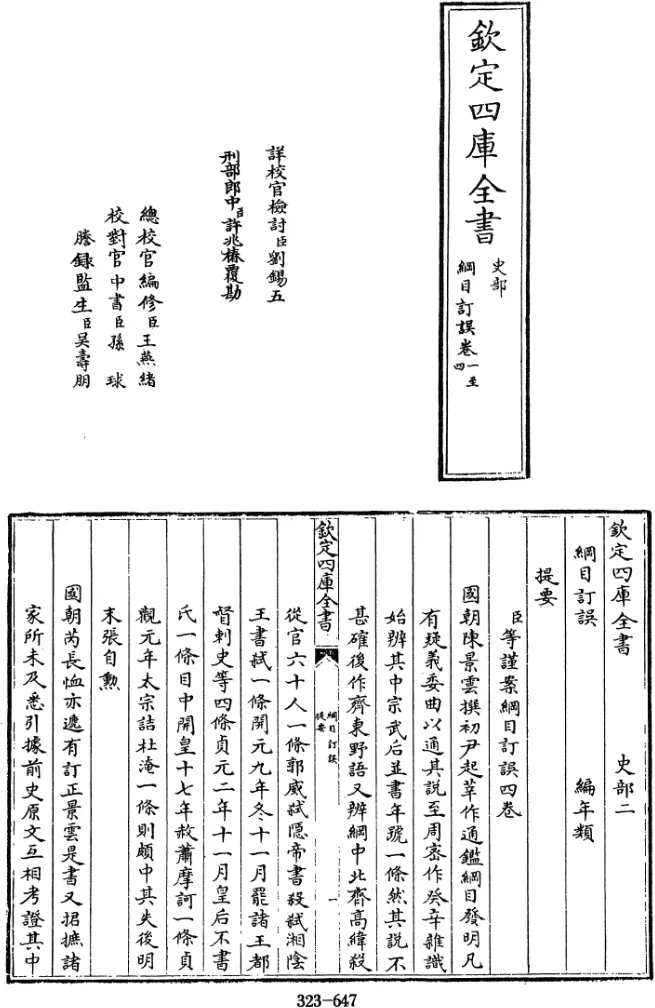 欽定四庫全書
史部
綱目訂誤卷一至四
詳校官檢討臣劉錫五
刑部郎中臣許兆椿覆勘
總校官編修臣王燕緒
校對官中書臣孫球
謄錄監生臣吴壽朋
欽定四庫全書 史部二
綱目訂誤 編年類
提要
臣等謹案綱目訂誤四卷
國朝陳景雲撰初尹起莘作通鑑綱目發明凡
有疑義委曲以通其説至周密作癸辛雜識
始辨其中宗武后並書年號一條然其説不
甚確後作齊東野語又辨綱中北齊高緯殺
欽定四庫全書
綱目訂誤
提要
一
從官六十人一條郭威弑隱帝書殺弑湘陰
王書弑一條開元九年冬十一月罷諸王都
督刺史等四條貞元二年十一月皇后不書
氏一條目中開皇十七年赦蕭摩訶一條貞
觀元年太宗詰杜淹一條則頗中其失後明
末張自勲
國朝芮長恤亦遞有訂正景雲是書又捃摭諸
家所未及悉引據前史原文互相考證其中
323-647